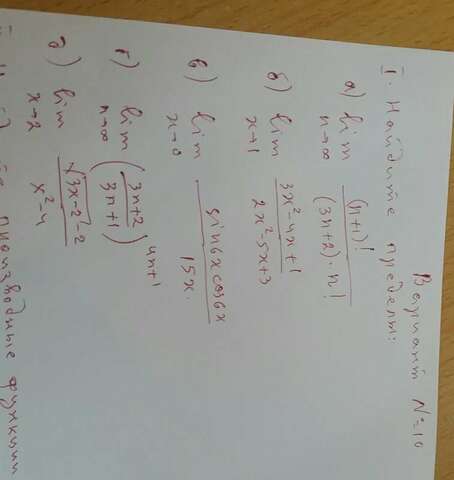 Вариант №=10
I. Найдите пределы:
а) lim n→∞ (n+1)! / (3n+2)·n!
б) lim x→1 3x²-4x+1 / 2x²-5x+3
в) lim x→0 sin6x cos6x / 15x.
г) lim n→∞ (3n+2 / 3n+1)^4n+1
д) lim x→2 √3x-2-2 / x²-4
производные функции